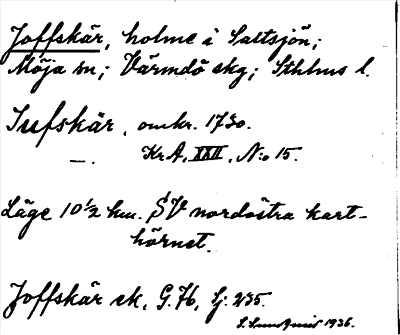 Joffskär, holme i Saltsjön;
Möja sn; Värmdö skg; Sthlms l.
Jufskär, omkr. 1730.
—. KrA, XXII, N:o 15.
Läge 10 1/2 km. SV nordöstra kart-
hörnet.
Joffskär sk, G. 76, Sj. 235.
1936.